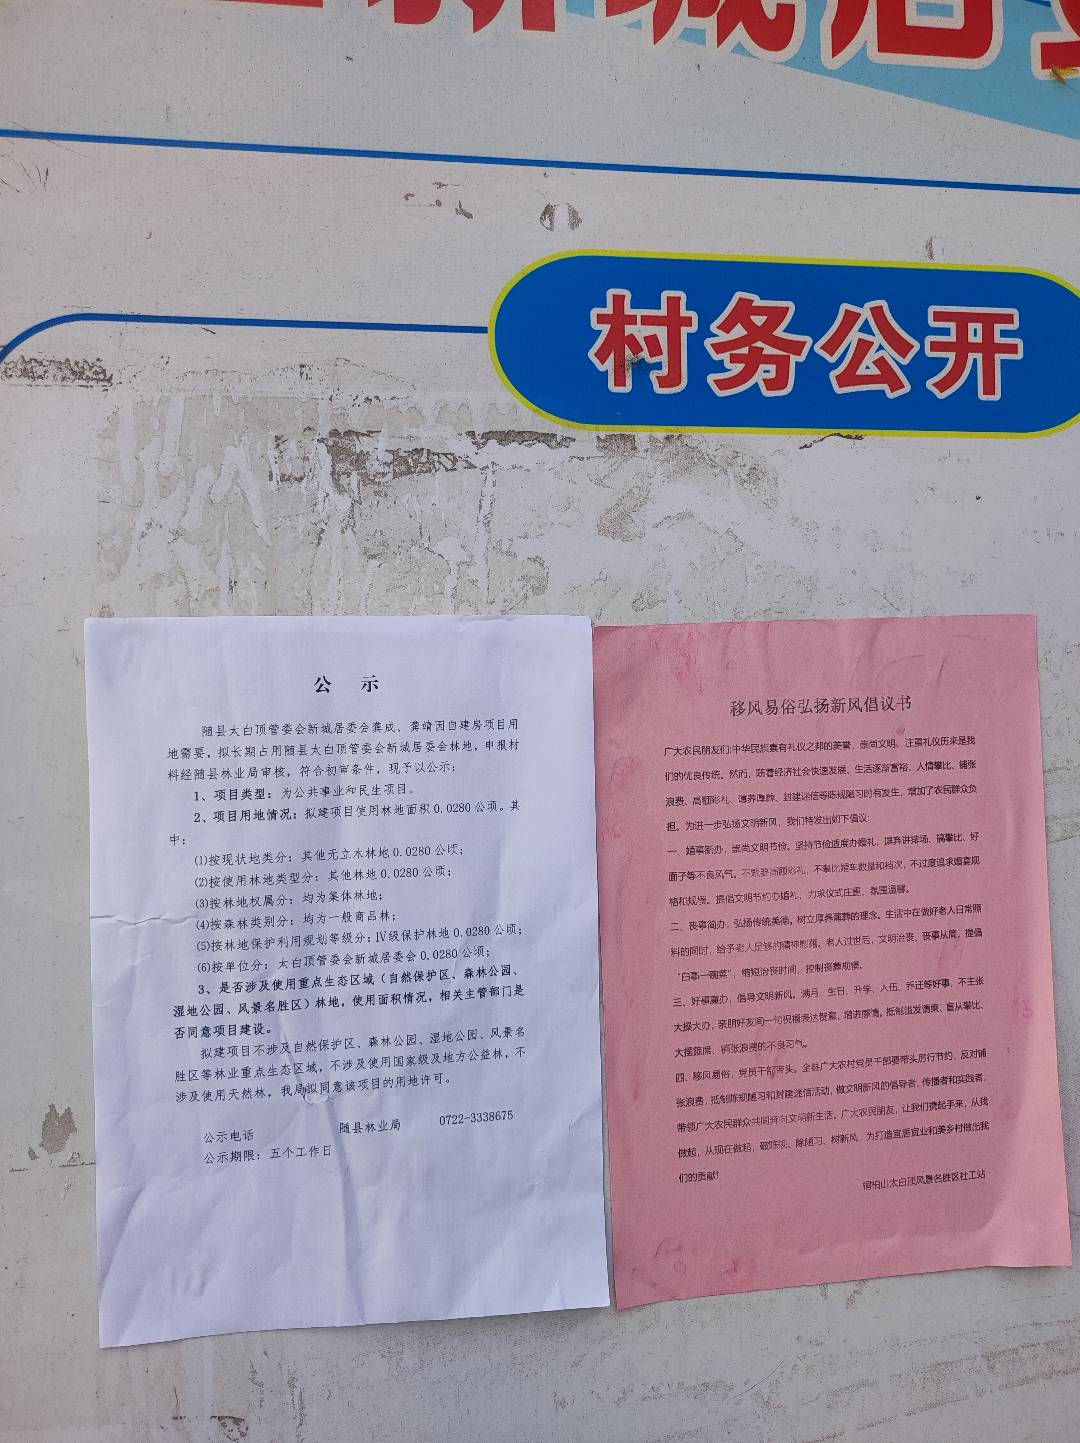 新城居
村务公开
公 示
随县太白顶管委会新城居委会龚成、龚靖因自建房项目用
地需要，拟长期占用随县太白顶管委会新城居委会林地，申报材
料经随县林业局审核，符合初审条件，现予以公示：
1、项目类型：为公共事业和民生项目。
2、项目用地情况：拟建项目使用林地面积0.0280公顷。其
中：
⑴按现状地类分：其他无立木林地0.0280公顷；
⑵按使用林地类型分：其他林地0.0280公顷；
⑶按林地权属分：均为集体林地；
⑷按森林类别分：均为一般商品林；
⑸按林地保护利用规划等级分：Ⅳ级保护林地0.0280公顷；
⑹按单位分：太白顶管委会新城居委会0.0280公顷；
3、是否涉及使用重点生态区域（自然保护区、森林公园、
湿地公园、风景名胜区）林地，使用面积情况，相关主管部门是
否同意项目建设。
拟建项目不涉及自然保护区、森林公园、湿地公园、风景名
胜区等林业重点生态区域，不涉及使用国家级及地方公益林，不
涉及使用天然林，我局拟同意该项目的用地许可。
公示电话 随县林业局 0722-3338675
公示期限：五个工作日
移风易俗弘扬新风倡议书
广大农民朋友们:中华民族素有礼仪之邦的美誉，崇尚文明、注重礼仪历来是我
们的优良传统。然而，随着经济社会快速发展、生活逐渐富裕，人情攀比、铺张
浪费、高额彩礼、薄养厚葬、封建迷信等陈规陋习时有发生，增加了农民群众负
担。为进一步弘扬文明新风，我们特发出如下倡议:
一、婚事新办，崇尚文明节俭。坚持节俭适度办婚礼，摒弃讲排场、搞攀比、好
面子等不良风气。不索要高额彩礼，不攀比婚车数量和档次，不过度追求婚宴规
格和规模。提倡文明节约办婚礼，力求仪式庄重、氛围温馨。
二、丧事简办，弘扬传统美德。树立厚养薄葬的理念。生活中在做好老人日常照
料的同时，给予老人足够的精神慰藉。老人过世后，文明治丧、丧事从简，提倡
“白事一碗菜”，缩短治丧时间，控制丧葬规模。
三、好事廉办，倡导文明新风。满月、生日、升学、入伍、乔迁等好事，不主张
大操大办，亲朋好友间一句祝福表达贺意，增进感情。抵制滥发请柬、盲从攀比、
大摆筵席、铺张浪费的不良习气。
四、移风易俗，党员干部带头。全县广大农村党员干部要带头厉行节约、反对铺
张浪费，抵制陈规陋习和封建迷信活动，做文明新风的倡导者、传播者和实践者，
带领广大农民群众共同奔向文明新生活。广大农民朋友，让我们携起手来，从我
做起，从现在做起，破陈规、除陋习、树新风，为打造宜居宜业和美乡村做出我
们的贡献!
桐柏山太白顶风景名胜区社工站